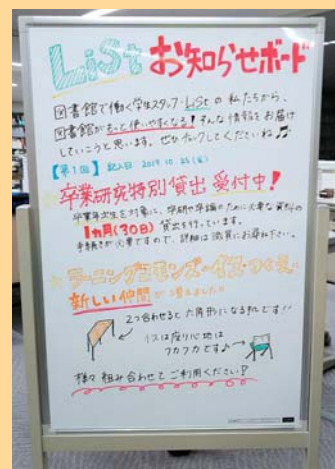 LiSt お知らせボード
図書館で働く学生スタッフ・LiStの私たちから、
図書館がもっと使いやすくなる!そんな情報をお届け
していこうと思います。ぜひチェックしてくださいね♫
【第1回】記入日:2019.10.25(金)
卒業研究特別貸出 受付中!
卒業年次生を対象に、学研や卒論のために必要な資料の
1ヵ月(30日)貸出を行っています。
手続きが必要ですので、詳細は職員にお尋ね下さい。
ラーニングコモンズにイスつくえ
新しい仲間が増えました!!
2つ合わせると六角形になる机です!!
イスは座り心地は
フカフカです♪
様々組み合わせてご利用ください!